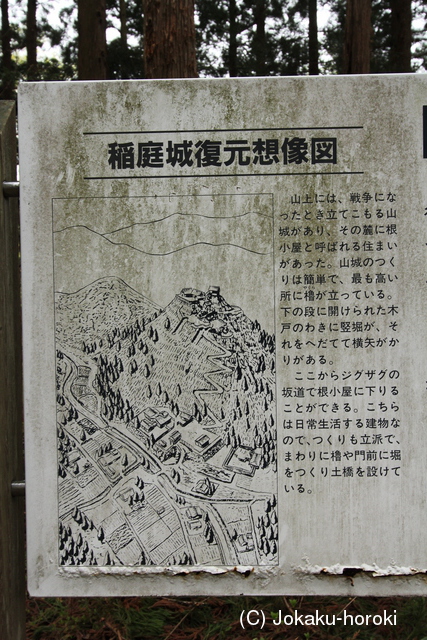 稲庭城復元想像図
山上には、戦争にな
ったとき立てこもる山
城があり、その麓に根
小屋と呼ばれる住まい
があった。山城のつく
りは簡単で、最も高い
所に櫓が立っている。
下の段に開けられた木
戸のわきに竪堀が、そ
れをへだてて横矢がか
りがある。
ここからジグザグの
坂道で根小屋に下りる
ことができる。こちら
は日常生活する建物な
ので、つくりも立派で、
まわりに櫓や門前に堀
をつくり土橋を設けて
いる。
(C) Jokaku-horoki